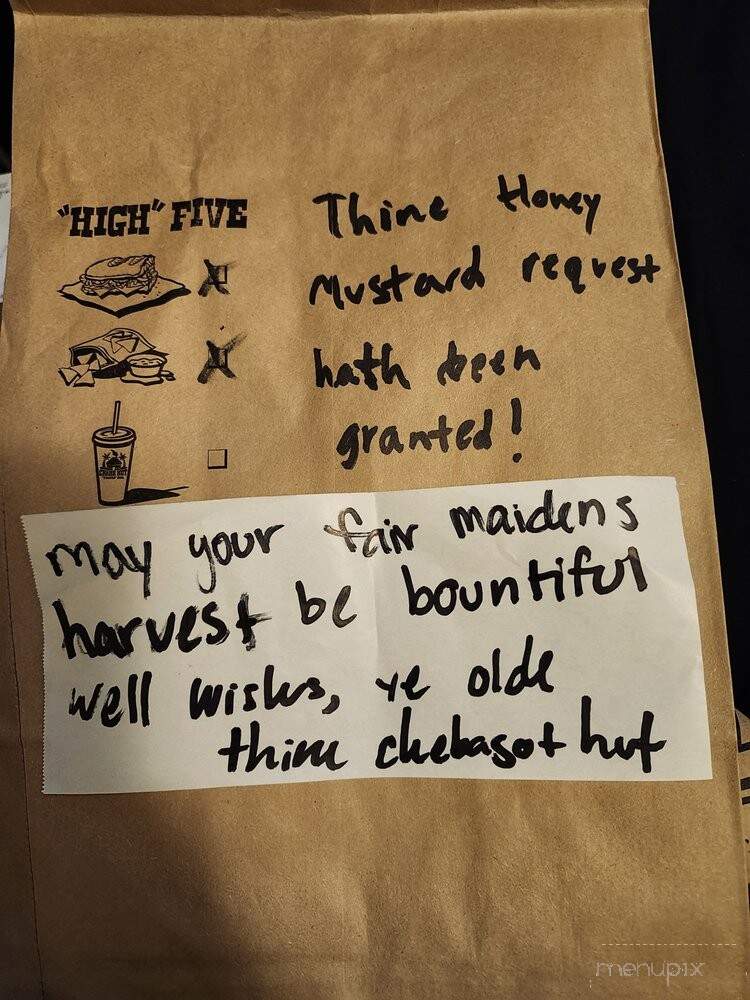 "HIGH" FIVE
Thine Honey
Mustard request
hath been
granted!
CHEBA HUT
may your fair maidens
harvest be bountiful
well wishes, ye olde
thine chebasot hut
menupix